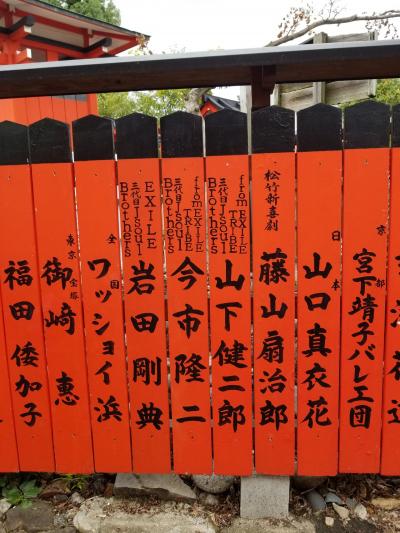 京都
宮下靖子バレエ団
日本
山口真衣花
松竹新喜劇
藤山扇治郎
from EXILE TRIBE
三代目JSoul
Brothers
山下健二郎
from EXILE TRIBE
三代目JSoul
Brothers
今市隆二
EXILE
三代目JSoul
Brothers
岩田剛典
全国
ワッショイ浜
宝塚
東京
御崎恵
福田倭加子